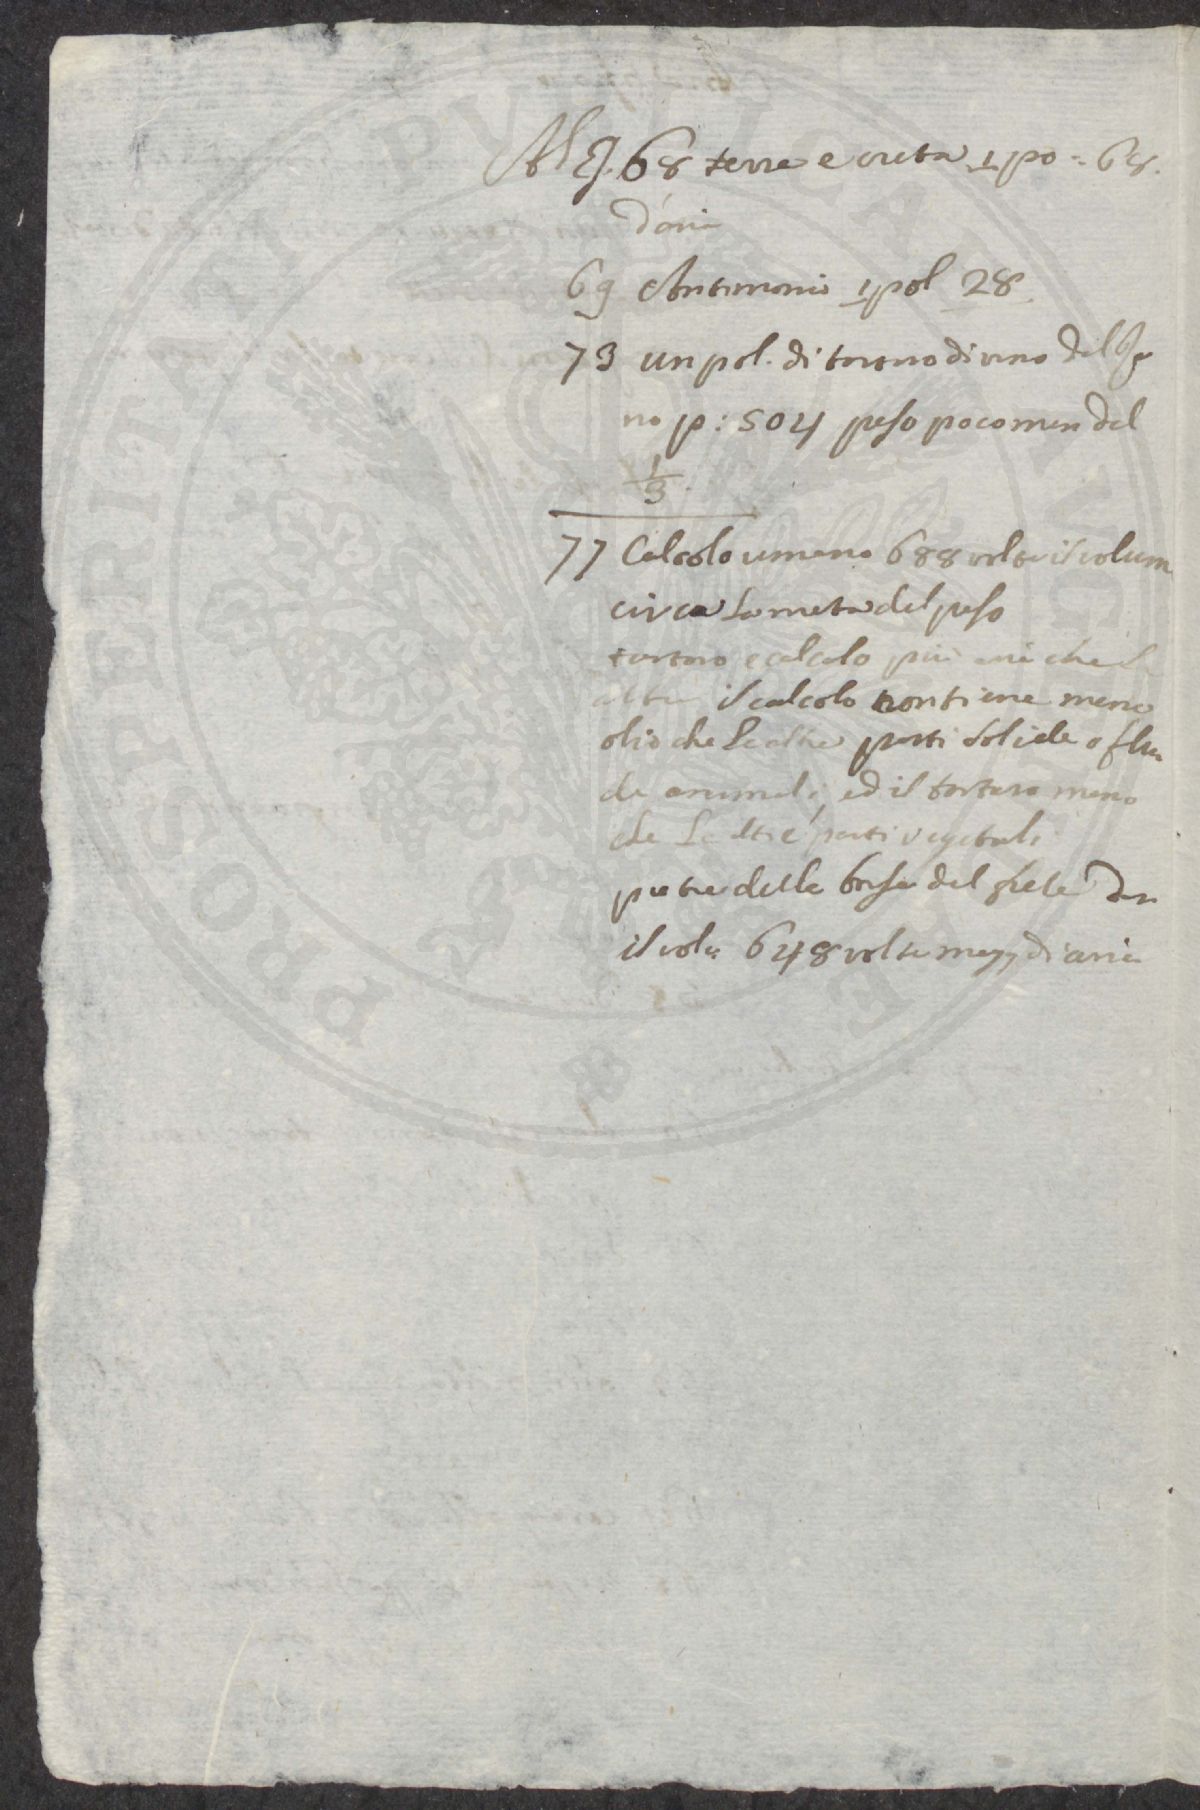 Al E. 68 terra e creta 1 po = 68.
d'aria
69 Antimonio 1 pol 28
73 un pol. di tartaro di vino del Re
no p: 504 peso poco men del
1/3.
77 Calcolo umano 688 volte il volum
circa la meta del peso
tartaro e calcolo più aria che
altri il calcolo contiene meno
olio che le altre parti solide o flui
de animali, ed il tartaro meno
che le altre parti vegetali
pietre delle borse del fiele dan
il vol: 648 volte magg di aria
PROSPERITATI PVBLICAE